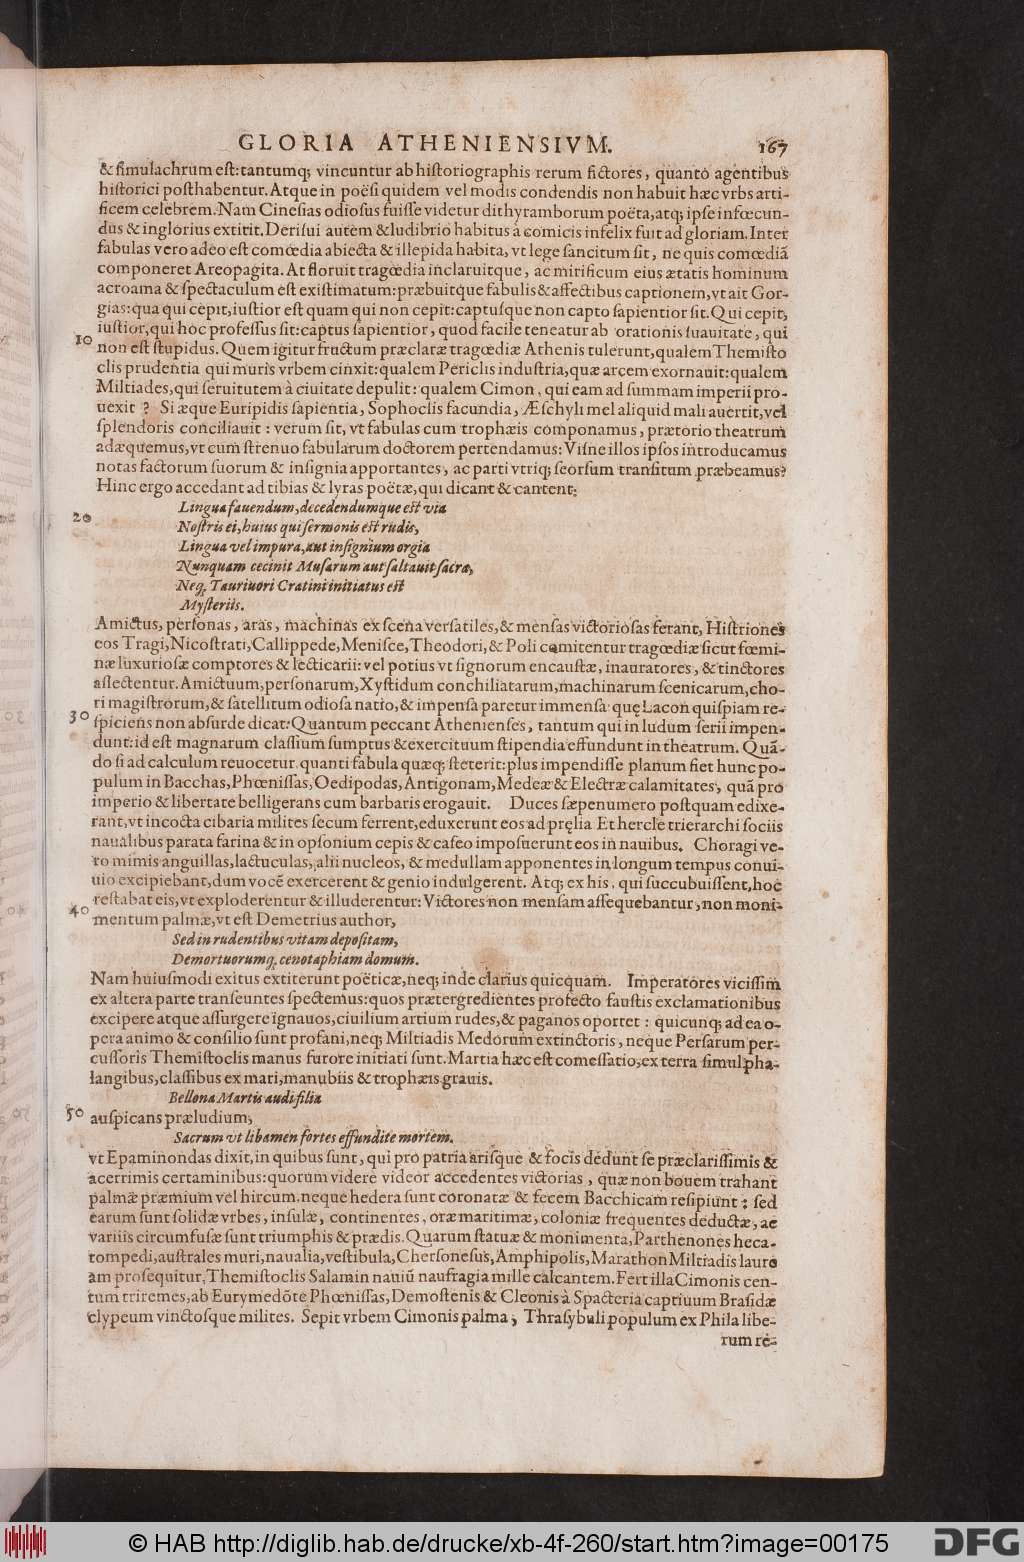 GLORIA ATHENIENSIVM. 167
& ſimulachrum eſt: tantumq; vincuntur ab hiſtoriographis rerum fictores, quantò agentibus
hiſtorici poſthabentur. Atque in poëſi quidem vel modis condendis non habuit hæc vrbs arti-
ficem celebrem. Nam Cineſias odioſus fuiſſe videtur dithyramborum poëta, atq; ipſe infœcun-
dus & inglorius extitit. Deriſui autem & ludibrio habitus à comicis infelix fuit ad gloriam. Inter
fabulas vero adeo eſt comœdia abiecta & illepida habita, vt lege ſancitum ſit, ne quis comœdiã
componeret Areopagita. At floruit tragœdia inclaruitque, ac mirificum eius ætatis hominum
acroama & ſpectaculum eſt exiſtimatum: præbuitque fabulis & affectibus captionem, vt ait Gor-
gias: qua qui cepit, iuſtior eſt quam qui non cepit: captuſque non capto ſapientior ſit. Qui cepit,
iuſtior, qui hoc profeſſus ſit: captus ſapientior, quod facile teneatur ab orationis ſuauitate, qui
10 non eſt ſtupidus. Quem igitur fructum præclaræ tragœdiæ Athenis tulerunt, qualem Themiſto
clis prudentia qui muris vrbem cinxit: qualem Periclis induſtria, quæ arcem exornauit: qualem
Miltiades, qui ſeruitutem à ciuitate depulit: qualem Cimon, qui eam ad ſummam imperii pro-
uexit? Si æque Euripidis ſapientia, Sophoclis facundia, Æſchyli mel aliquid mali auertit, vel
ſplendoris conciliauit: verum ſit, vt fabulas cum trophæis componamus, prætorio theatrum
adæquemus, vt cum ſtrenuo fabularum doctorem pertendamus: Viſne illos ipſos introducamus
notas factorum ſuorum & inſignia apportantes, ac parti vtriq; ſeorſum tranſitum præbeamus?
Hinc ergo accedant ad tibias & lyras poëtæ, qui dicant & cantent:
Lingua fauendum, decedendumque eſt via
20 Noſtris ei, huius qui ſermonis eſt rudis,
Lingua vel impura, aut inſignium orgia
Nunquam cecinit Muſarum aut ſaltauit ſacra,
Neq; Tauriuori Cratini initiatus eſt
Myſteriis.
Amictus, perſonas, aras, machinas ex ſcena verſatiles, & menſas victorioſas ferant, Hiſtriones
eos Tragi, Nicoſtrati, Callippede, Meniſce, Theodori, & Poli comitentur tragœdiæ ſicut fœmi-
næ luxurioſæ comptores & lecticarii: vel potius vt ſignorum encauſtæ, inauratores, & tinctores
aſlectentur. Amictuum, perſonarum, Xyſtidum conchiliatarum, machinarum ſcenicarum, cho-
ri magiſtrorum, & ſatellitum odioſa natio, & impenſa paretur immenſa quę Lacon quiſpiam re-
30 ſpiciens non abſurde dicat: Quantum peccant Athenienſes, tantum qui in ludum ſerii impen-
dunt: id eſt magnarum claſſium ſumptus & exercituum ſtipendia effundunt in theatrum. Quã-
do ſi ad calculum reuocetur. quanti fabula quæq; ſteterit: plus impendiſſe planum fiet hunc po-
pulum in Bacchas, Phœniſſas, Oedipodas, Antigonam, Medeæ & Electræ calamitates, quã pro
imperio & libertate belligerans cum barbaris erogauit. Duces ſæpenumero poſtquam edixe-
rant, vt incocta cibaria milites ſecum ferrent, eduxerunt eos ad pręlia Et hercle trierarchi ſociis
naualibus parata farina & in opſonium cepis & caſeo impoſuerunt eos in nauibus. Choragi ve-
ro mimis anguillas, lactuculas, alii nucleos, & medullam apponentes in longum tempus conui-
uio excipiebant, dum vocẽ exercerent & genio indulgerent. Atq; ex his, qui ſuccubuiſſent, hoc
reſtabat eis, vt exploderentur & illuderentur: Victores non menſam aſſequebantur, non moni-
40 mentum palmæ, vt eſt Demetrius author,
Sed in rudentibus vitam depoſitam,
Demortuorumq; cenotaphiam domum.
Nam huiuſmodi exitus extiterunt poëticæ, neq; inde clarius quicquam. Imperatores viciſſim
ex altera parte tranſeuntes ſpectemus: quos prætergredientes profecto fauſtis exclamationibus
excipere atque aſſurgere ignauos, ciuilium artium rudes, & paganos oportet: quicunq; ad ea o-
pera animo & conſilio ſunt profani, neq; Miltiadis Medorum extinctoris, neque Perſarum per-
cuſſoris Themiſtoclis manus furore initiati ſunt. Martia hæc eſt comeſſatio, ex terra ſimul pha-
langibus, claſſibus ex mari, manubiis & trophæis grauis.
Bellona Martis audi filia
50 auſpicans præludium,
Sacrum vt libamen fortes effundite mortem.
vt Epaminondas dixit, in quibus ſunt, qui pro patria ariſque & focis dedunt ſe præclariſſimis &
acerrimis certaminibus: quorum videre videor accedentes victorias, quæ non bouem trahant
palmæ præmium vel hircum. neque hedera ſunt coronatæ & fecem Bacchicam reſipiunt: ſed
earum ſunt ſolidæ vrbes, inſulæ, continentes, oræ maritimæ, coloniæ frequentes deductæ, ac
variiis circumfuſæ ſunt triumphis & prædis. Quarum ſtatuæ & monimenta, Parthenones heca-
tompedi, auſtrales muri, naualia, veſtibula, Cherſoneſus, Amphipolis, Marathon Miltiadis laure
am proſequitur, Themiſtoclis Salamin nauiũ naufragia mille calcantem. Fert illa Cimonis cen-
tum triremes, ab Eurymedõte Phœniſſas, Demoſtenis & Cleonis à Spacteria captiuum Braſidæ
clypeum vinctoſque milites. Sepit vrbem Cimonis palma, Thraſybuli populum ex Phila libe-
rum re-
© HAB http://diglib.hab.de/drucke/xb-4f-260/start.htm?image=00175
DFG